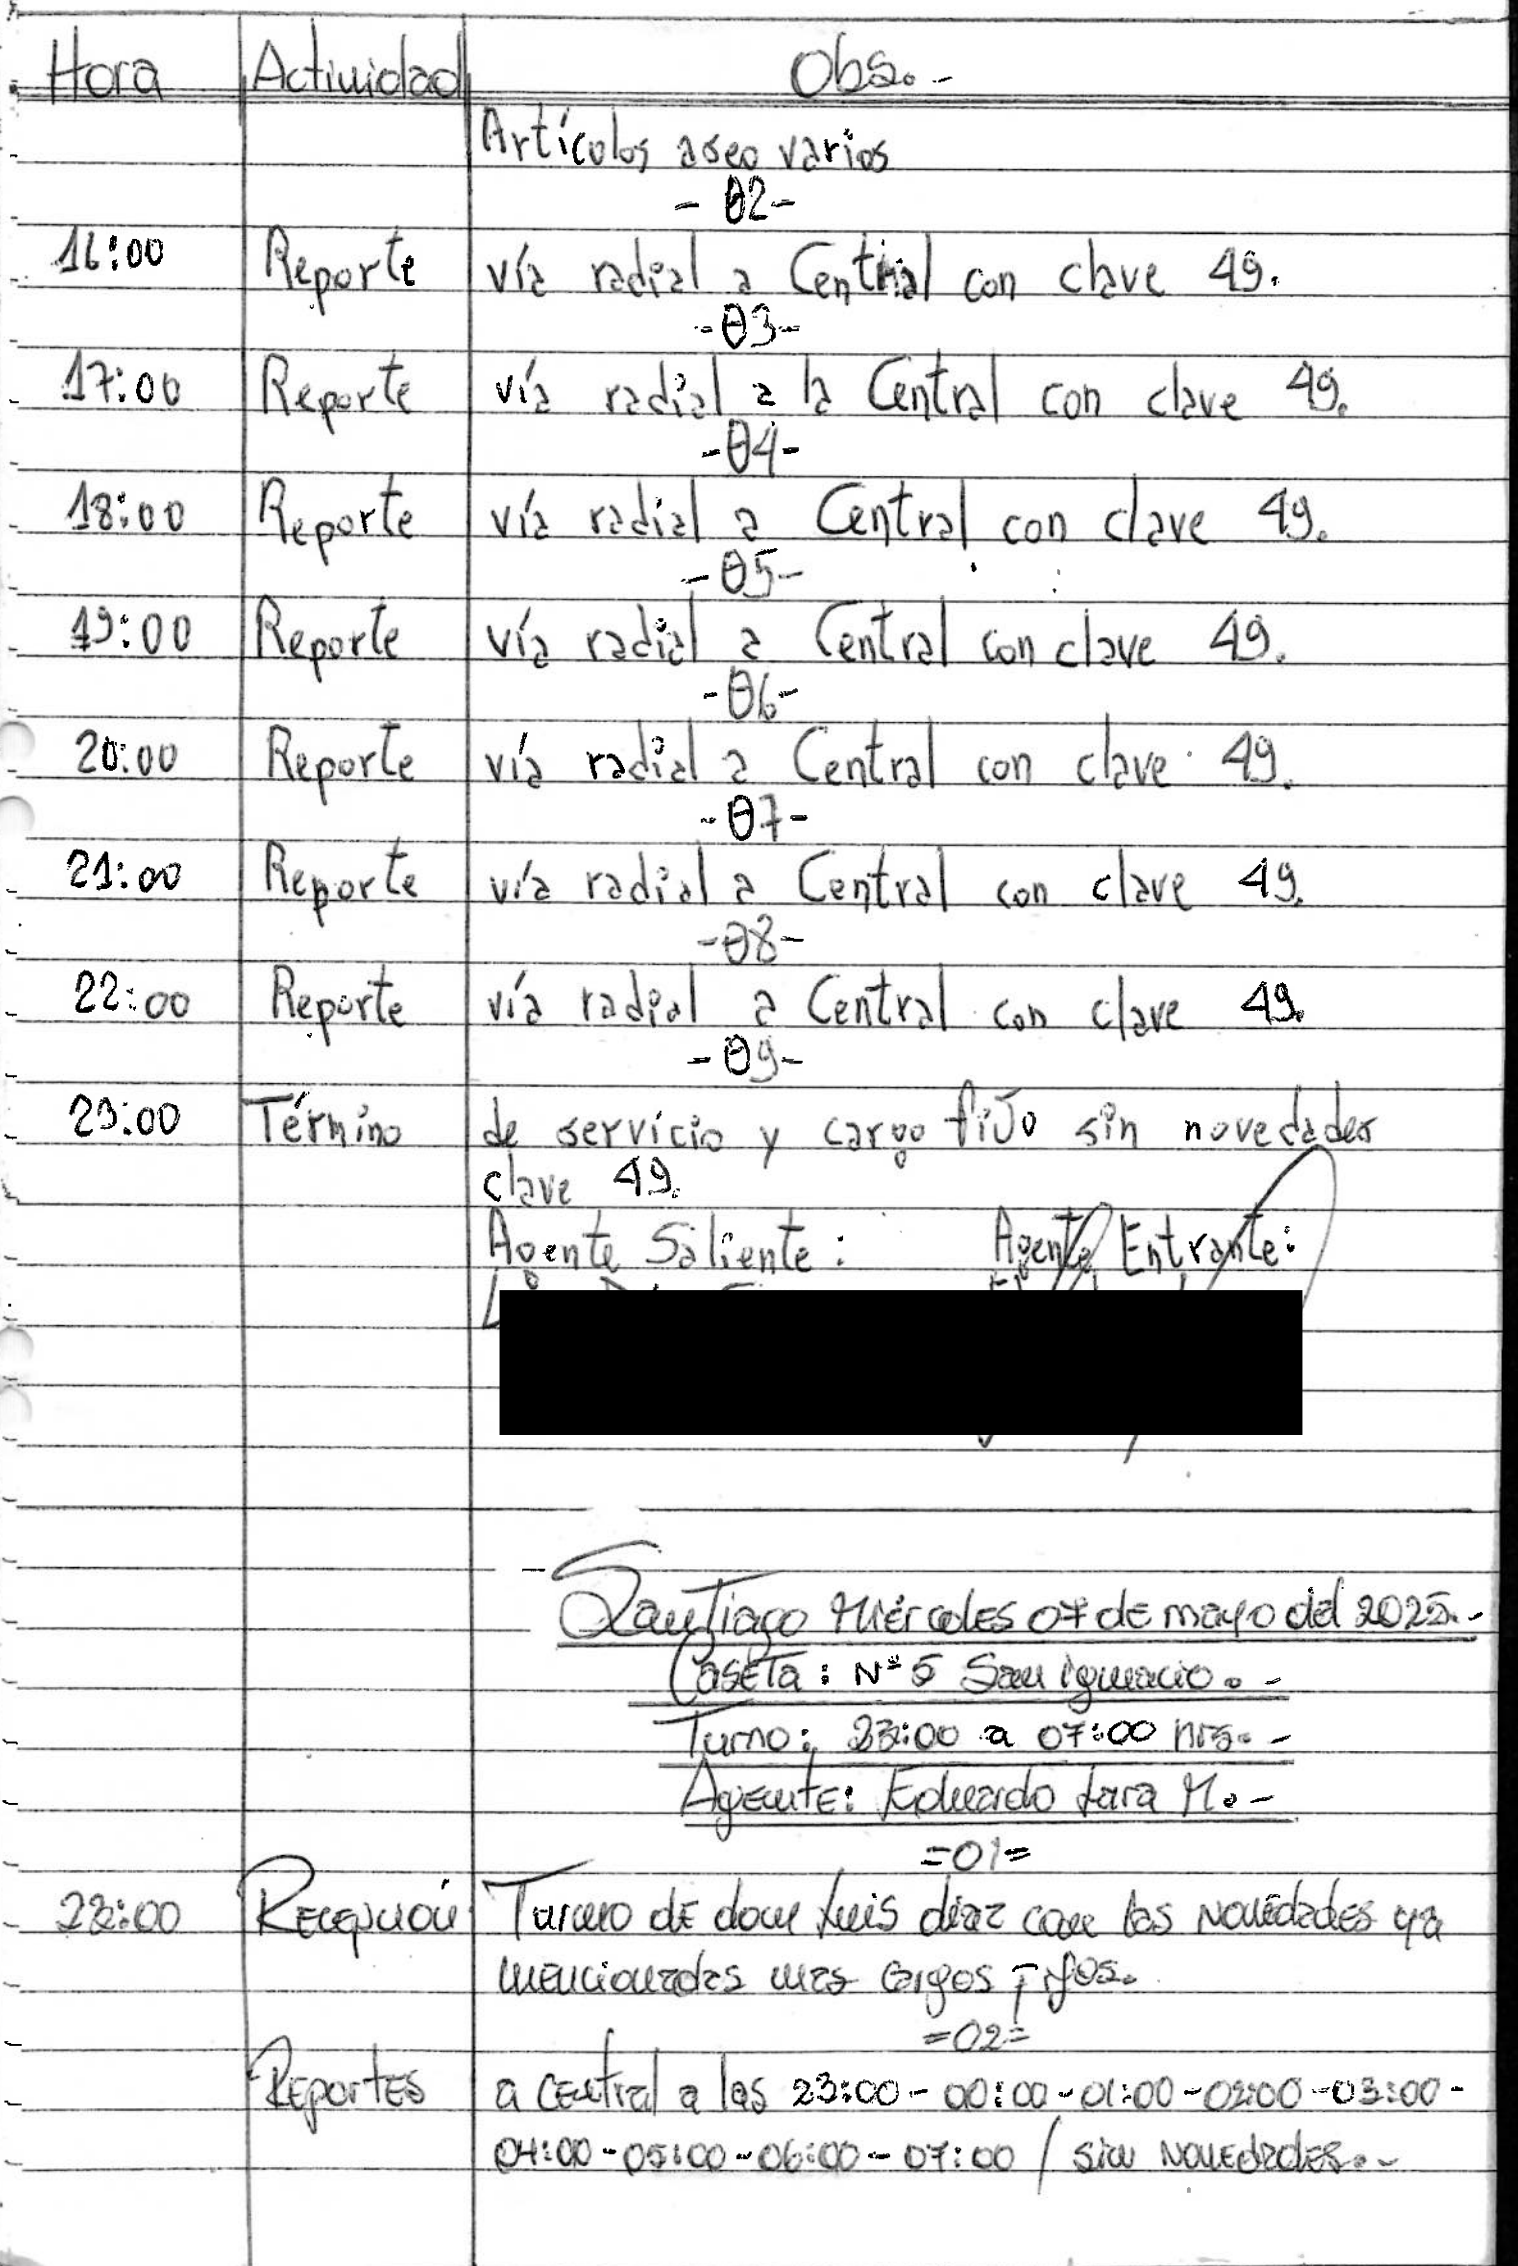 Hora Actividad Obs.-
Artículos aseo varios
- 02 -
16:00 Reporte vía radial a Central con clave 49.
- 03 -
17:00 Reporte vía radial a la Central con clave 49.
- 04 -
18:00 Reporte vía radial a Central con clave 49.
- 05 -
19:00 Reporte vía radial a Central con clave 49.
- 06 -
20:00 Reporte vía radial a Central con clave 49.
- 07 -
21:00 Reporte vía radial a Central con clave 49.
- 08 -
22:00 Reporte vía radial a Central con clave 49.
- 09 -
23:00 Término de servicio y cargo fijo sin novedades
clave 49.
Agente Saliente: Agente Entrante:
Santiago Miércoles 07 de mayo del 2025.-
Caseta: N° 5 San Ignacio.-
Turno: 23:00 a 07:00 hrs.-
Agente: Eduardo Lara M.-
=01=
Recepción Turno de don Luis diaz con las novedades ya
mencionadas mas cargos fijos.
=02=
Reportes a central a las 23:00-00:00-01:00-02:00-03:00-
04:00-05:00-06:00-07:00 / sin novedades.-